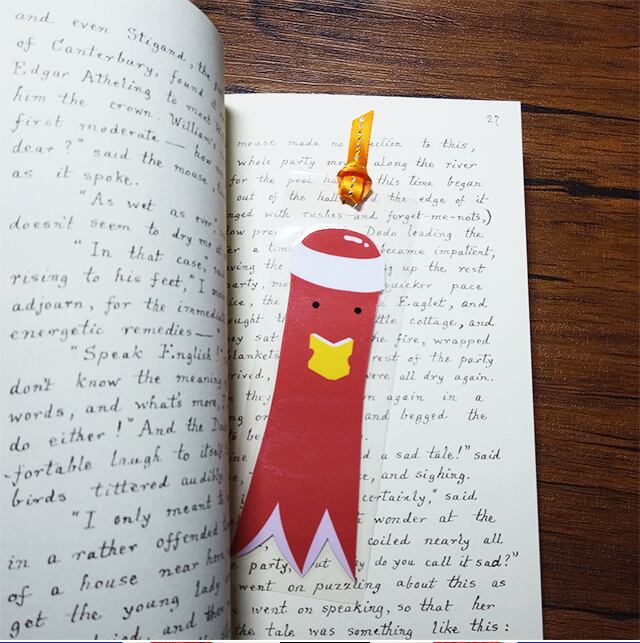 and even Stigand, the
of Canterbury, found
Edgar Atheling to meet
him the crown. William's
first moderate — how
dear?" said the mouse,
as it spoke.
"As wet as ever"
doesn't seem to dry me
"In that case," said
rising to his feet, "I move
adjourn, for the immediate
energetic remedies—"
"Speak English!"
don't know the meaning
words, and what's more, I
do either!" And the
-fortable laugh to itself
birds tittered audibly
"I only meant to
in a rather offended
of a house near here
get the young lady
and then
27
mouse made no to this,
whole party along the river
for the pool this time begun
out of the hall the edge of it
with rushes and forget-me-nots,)
low Dodo leading the
a time became impatient,
the up the rest
party, quicker pace
Eaglet, and
little cottage, and
sat the fire, wrapped
blankets rest of the party
were all dry again.
again in a
and begged the
a sad tale!" said
and sighing.
certainly," said
wonder at the
coiled nearly all
party, but do you call it sad?"
went on puzzling about this as
went on speaking, so that her
the tale was something like this: